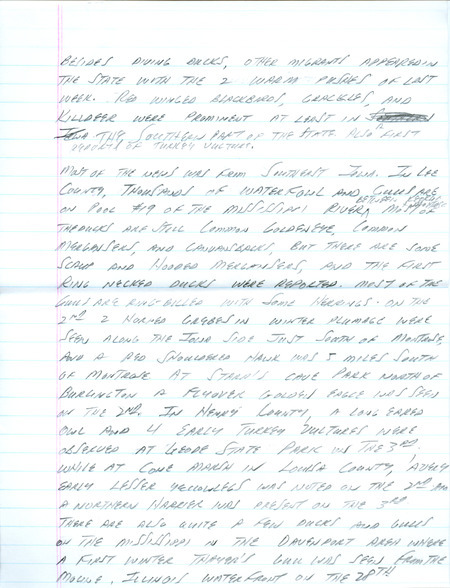 BESIDES DIVING DUCKS, OTHER MIGRANTS APPEARED IN
THE STATE WITH THE 2 WARM PUSHES OF LAST
WEEK. RED WINGED BLACKBIRDS, GRACKLES, AND
KILLDEER WERE PROMINENT AT LEAST IN
THE SOUTHERN PART OF THE STATE ALSO FIRST
REPORTS OF TURKEY VULTURE.
MOST OF THE NEWS WAS FROM SOUTHEAST IOWA. IN LEE
COUNTY, THOUSANDS OF WATERFOWL AND GULLS ARE
ON POOL #19 OF THE MISSISSIPPI RIVER BETWEEN MOST OF
THE DUCKS ARE STILL COMMON GOLDENEYE, COMMON
MERGANSERS, AND CANVASBACKS, BUT THERE ARE SOME
SCAUP AND HOODED MERGANSERS, AND THE FIRST
RING NECKED DUCKS WERE REPORTED. MOST OF THE
GULLS ARE RING-BILLED WITH SOME HERRINGS. ON THE
2ND 2 HORNED GREBES IN WINTER PLUMAGE WERE
SEEN ALONG THE IOWA SIDE JUST SOUTH OF MONTROSE,
AND A RED SHOULDERED HAWK WAS 5 MILES SOUTH
OF MONTROSE AT STARR'S CAVE PARK NORTH OF
BURLINGTON A FLYOVER GOLDEN EAGLE WAS SEEN
ON THE 2ND. IN HENRY COUNTY, A LONG EARED
OWL AND 4 EARLY TURKEY VULTURES WERE
OBSERVED AT GEODE STATE PARK ON THE 3RD,
WHILE AT CONE MARSH IN LOUISA COUNTY, A VERY
EARLY LESSER YELLOWLEGS WAS NOTED ON THE 2ND AND
A NORTHERN HARRIER WAS PRESENT ON THE 3RD
THERE ARE ALSO QUITE A FEW DUCKS AND GULLS
ON THE MISSISSIPPI IN THE DAVENPORT AREA WHERE
A FIRST WINTER THAYER'S GULL WAS SEEN FROM THE
MOLINE, ILLINOIS WATERFRONT ON THE 28TH